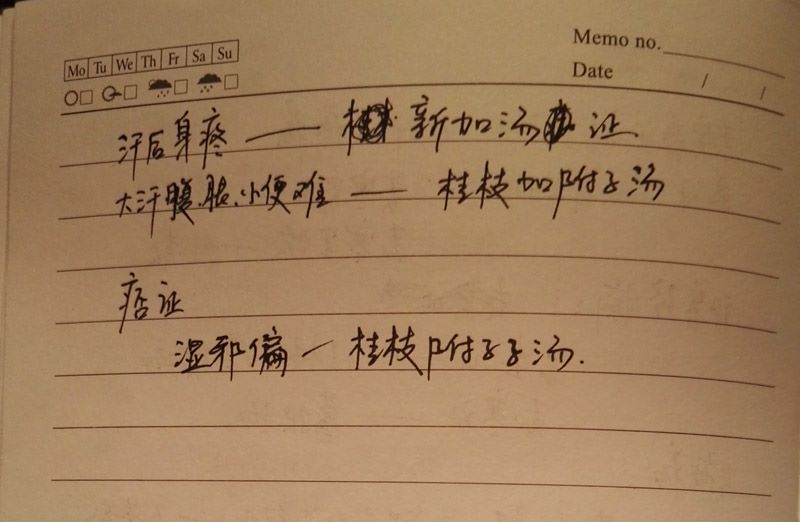 Memo no.
Mo Tu We Th Fr Sa Su
Date / /
汗后身疼 — 新加汤证
大汗腹胀、小便难 — 桂枝加附子汤
痞证
湿邪偏 — 桂枝附子汤.